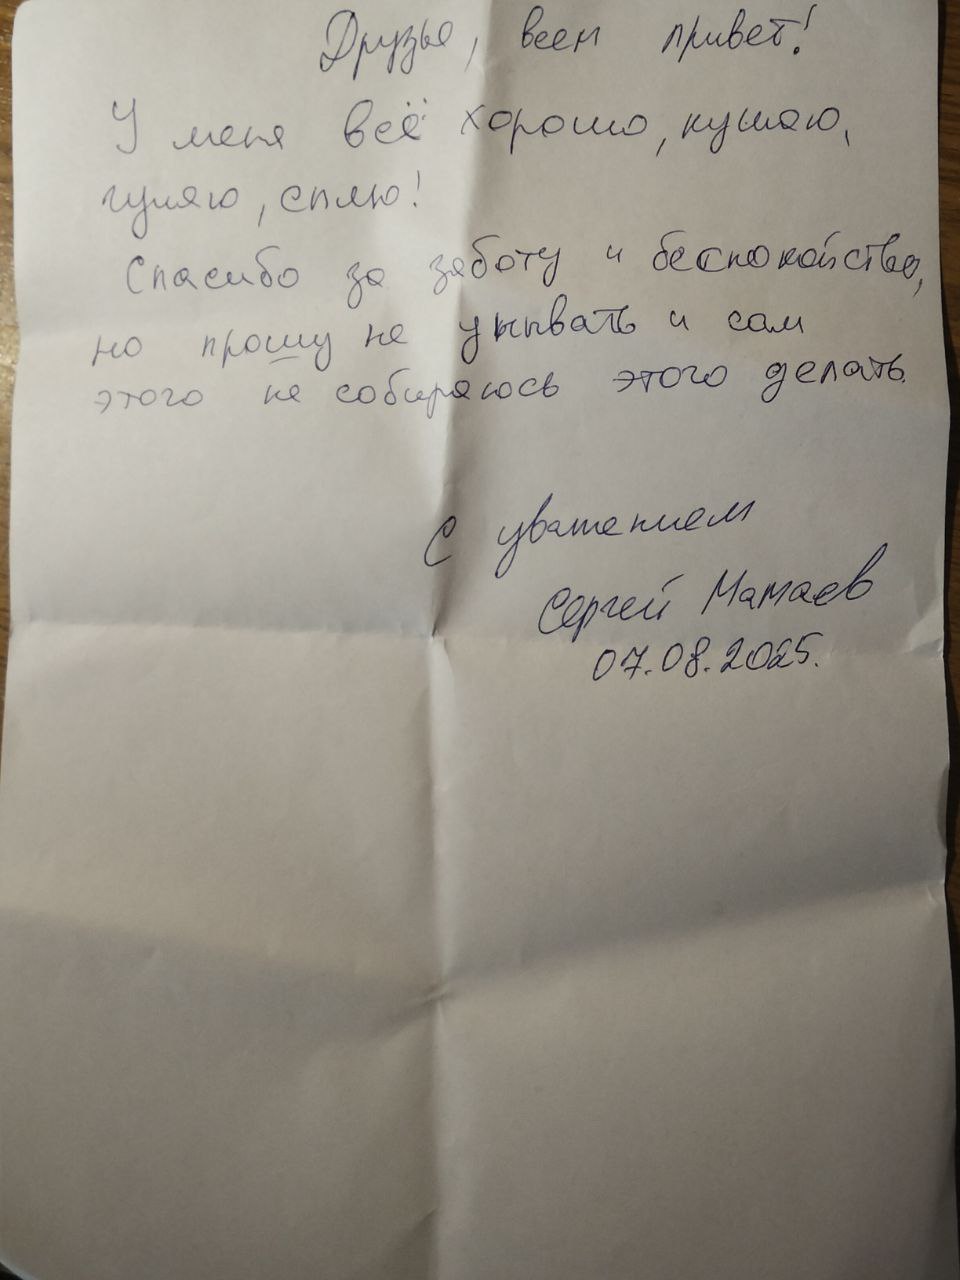 Друзья, всем привет!
У меня всё хорошо, кушаю,
гуляю, сплю!
Спасибо за заботу и беспокойство,
но прошу не унывать и сам
этого не собираюсь этого делать.
С уважением
Сергей Мамаев
07.08.2025.